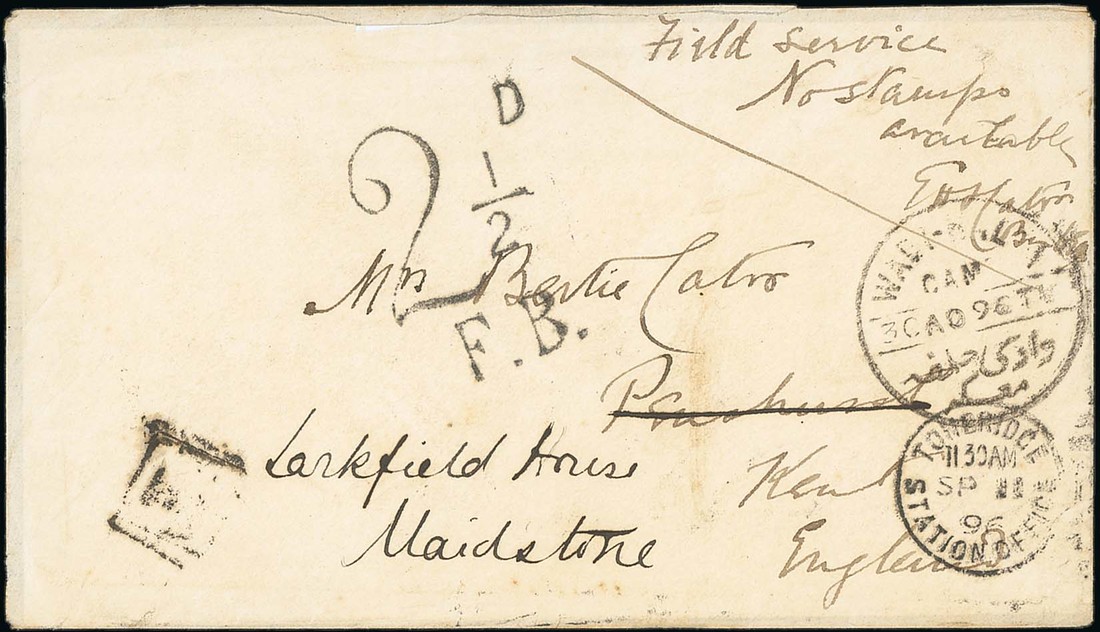 Field service
No stamps
available
D
2 1/2
F.B.
Mrs Bertie Cator
WADI
CAMP
30 AO 96
وادي حلفه
معسكر
Penshurst
Larkfield House
Maidstone
Kent
England
TONBRIDGE
11 30 AM
SP 11
96
STATION OFFICE